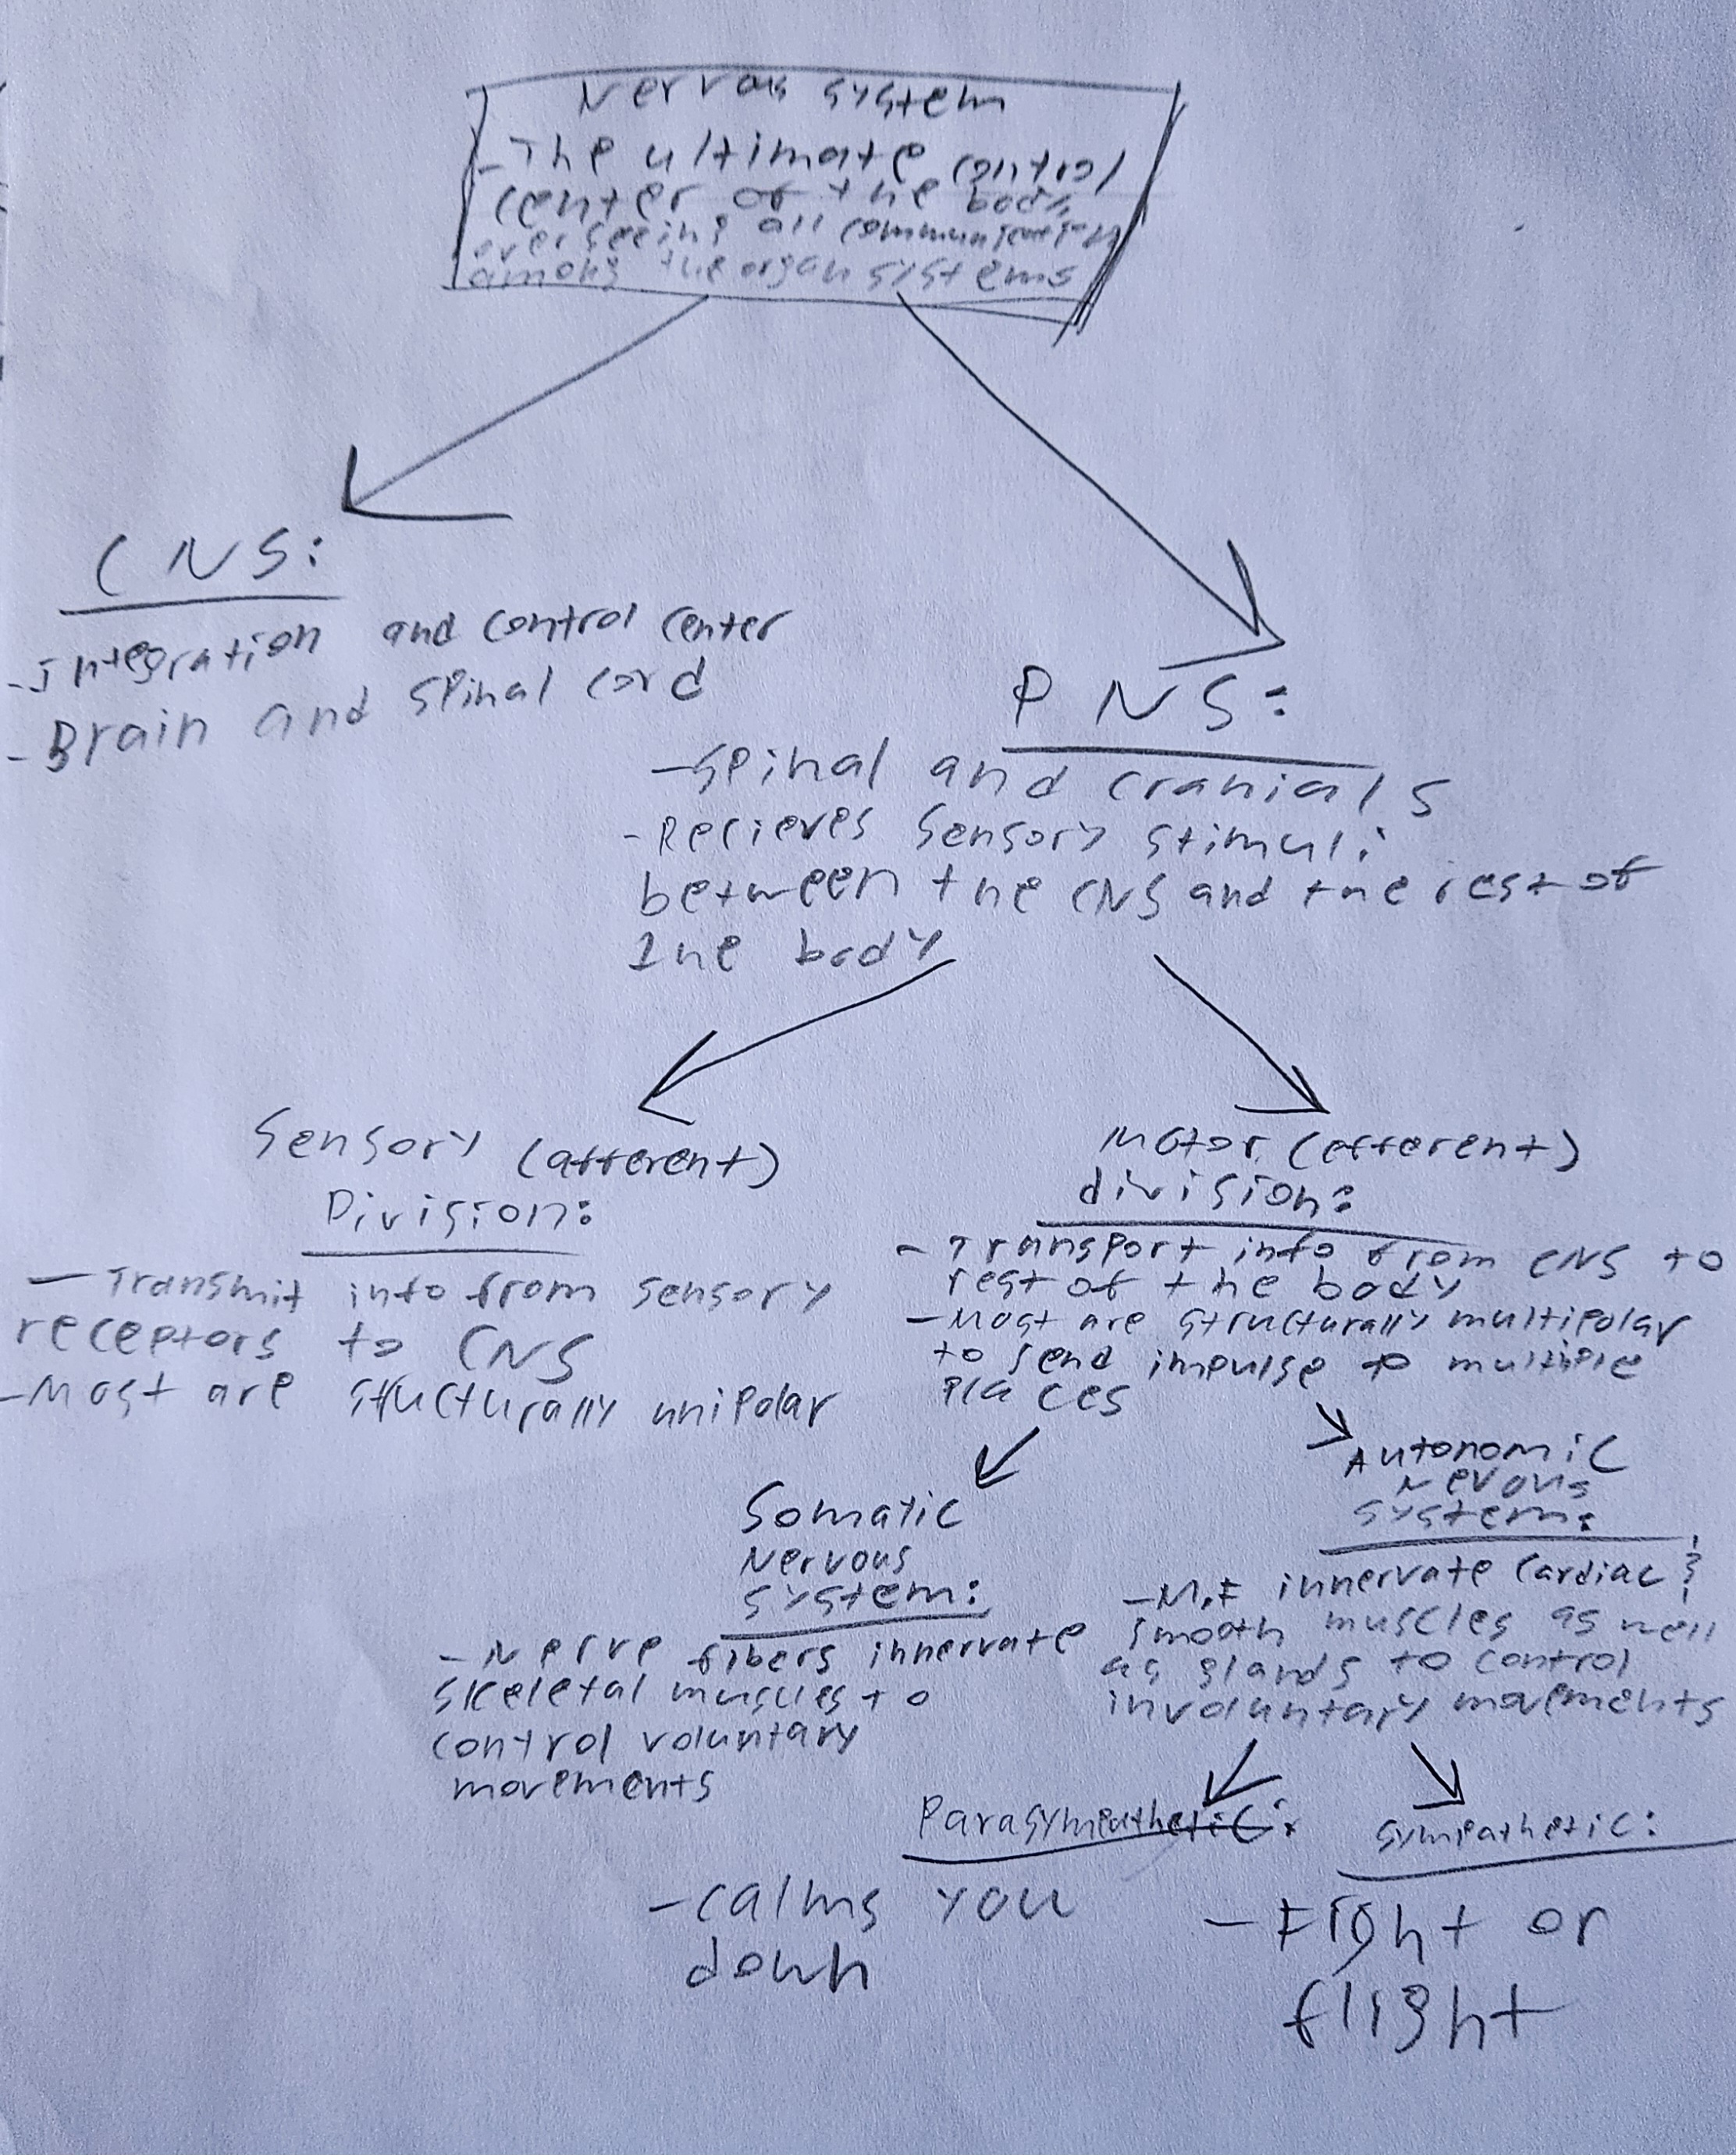 Nervous system
-The ultimate control
center of the body
overseeing all communication
among the organ systems
CNS:
-Integration and control center
-Brain and spinal cord
PNS:
-Spinal and cranials
-Recieves sensory stimuli
between the CNS and the rest of
the body
Sensory (afferent)
Division:
-Transmit info from sensory
receptors to CNS
-Most are structurally unipolar
Motor (efferent)
division:
-Transport info from CNS to
rest of the body
-Most are structurally multipolar
to send impulse to multiple
places
Somatic
Nervous
system:
-Nerve fibers innervate
skeletal muscles to
control voluntary
movements
Autonomic
Nevous
system:
-M.F innervate cardiac &
smooth muscles as well
as glands to control
involuntary movements
Parasympathetic:
-calms you
down
Sympathetic:
-Fight or
flight